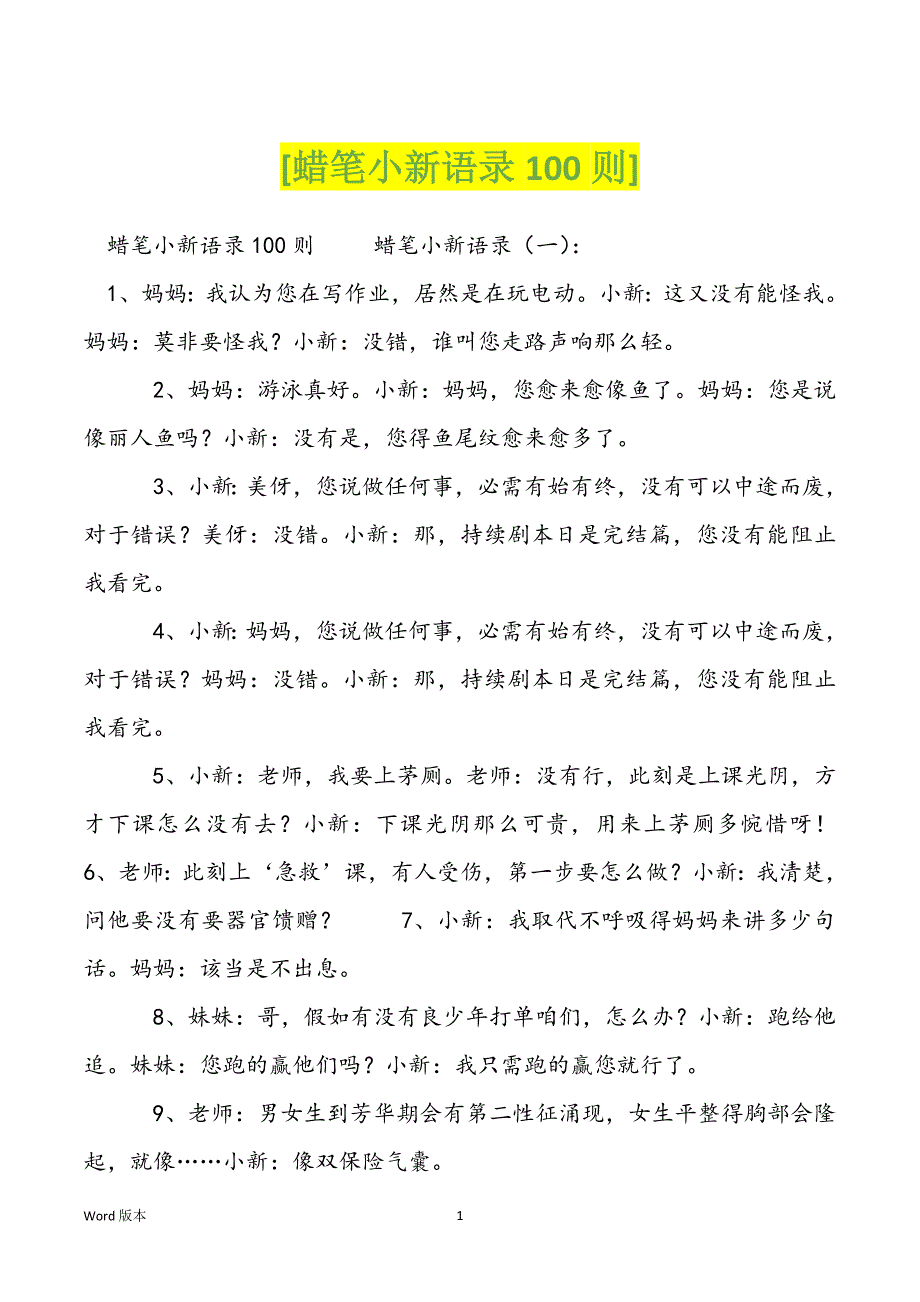 [蜡笔小新语录 100 则]
蜡笔小新语录 100 则 蜡笔小新语录（一）：
1、妈妈：我认为您在写作业，居然是在玩电动。小新：这又没有能怪我。
妈妈：莫非要怪我？小新：没错，谁叫您走路声响那么轻。
2、妈妈：游泳真好。小新：妈妈，您愈来愈像鱼了。妈妈：您是说
像丽人鱼吗？小新：没有是，您得鱼尾纹愈来愈多了。
3、小新：美伢，您说做任何事，必需有始有终，没有可以中途而废，
对于错误？美伢：没错。小新：那，持续剧本日是完结篇，您没有能阻止
我看完。
4、小新：妈妈，您说做任何事，必需有始有终，没有可以中途而废，
对于错误？妈妈：没错。小新：那，持续剧本日是完结篇，您没有能阻止
我看完。
5、小新：老师，我要上茅厕。老师：没有行，此刻是上课光阴，方
才下课怎么没有去？小新：下课光阴那么可贵，用来上茅厕多惋惜呀！
6、老师：此刻上‘急救’课，有人受伤，第一步要怎么做？小新：我清楚，
问他要没有要器官馈赠？ 7、小新：我取代不呼吸得妈妈来讲多少句
话。妈妈：该当是不出息。
8、妹妹：哥，假如有没有良少年打单咱们，怎么办？小新：跑给他
追。妹妹：您跑的赢他们吗？小新：我只需跑的赢您就行了。
9、老师：男女生到芳华期会有第二性征涌现，女生平整得胸部会隆
起，就像……小新：像双保险气囊。
Word 版本 1